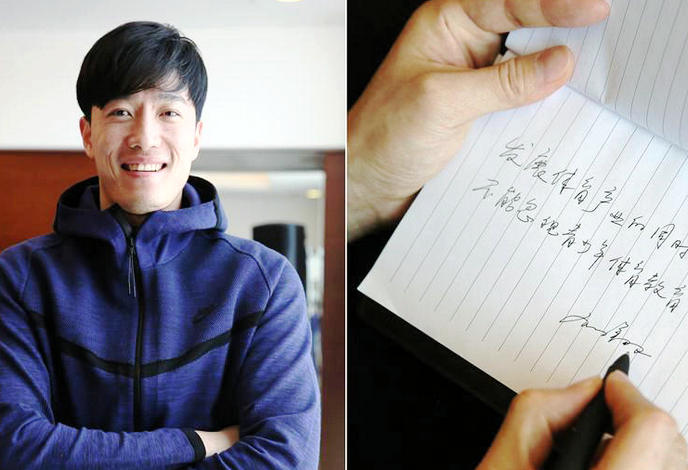 发展体育产业的同时
不能忽视青少年体育教育